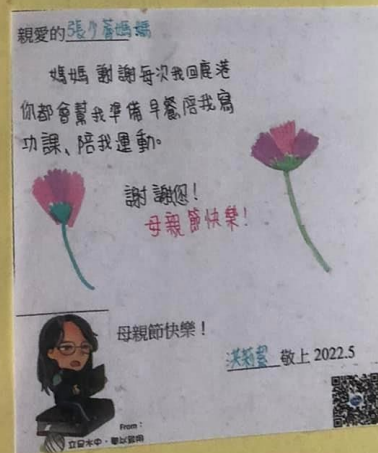 親愛的張夕蓄媽媽
媽媽 謝謝每次我回鹿港
你都會幫我準備早餐、陪我寫
功課、陪我運動。
謝謝您!
母親節快樂!
母親節快樂!
敬上 2022.5
From: